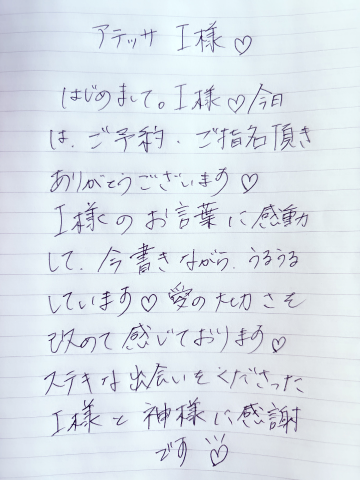 アテッサ I様♡
はじめまして。I様♡今日
は、ご予約、ご指名頂き
ありがとうございます♡
I様のお言葉に感動
して、今書きながら、うるうる
しています♡愛の大切さを
改めて感じております♡
ステキな出会いをくださった
I様と神様に感謝
です♡